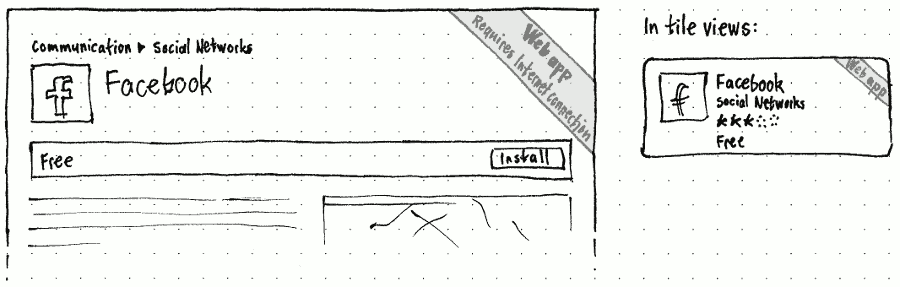 Communication ▸ Social Networks
Facebook
Web app
Requires Internet connection
Free
Install
In tile views:
Web app
Facebook
Social Networks
★★★☆☆
Free